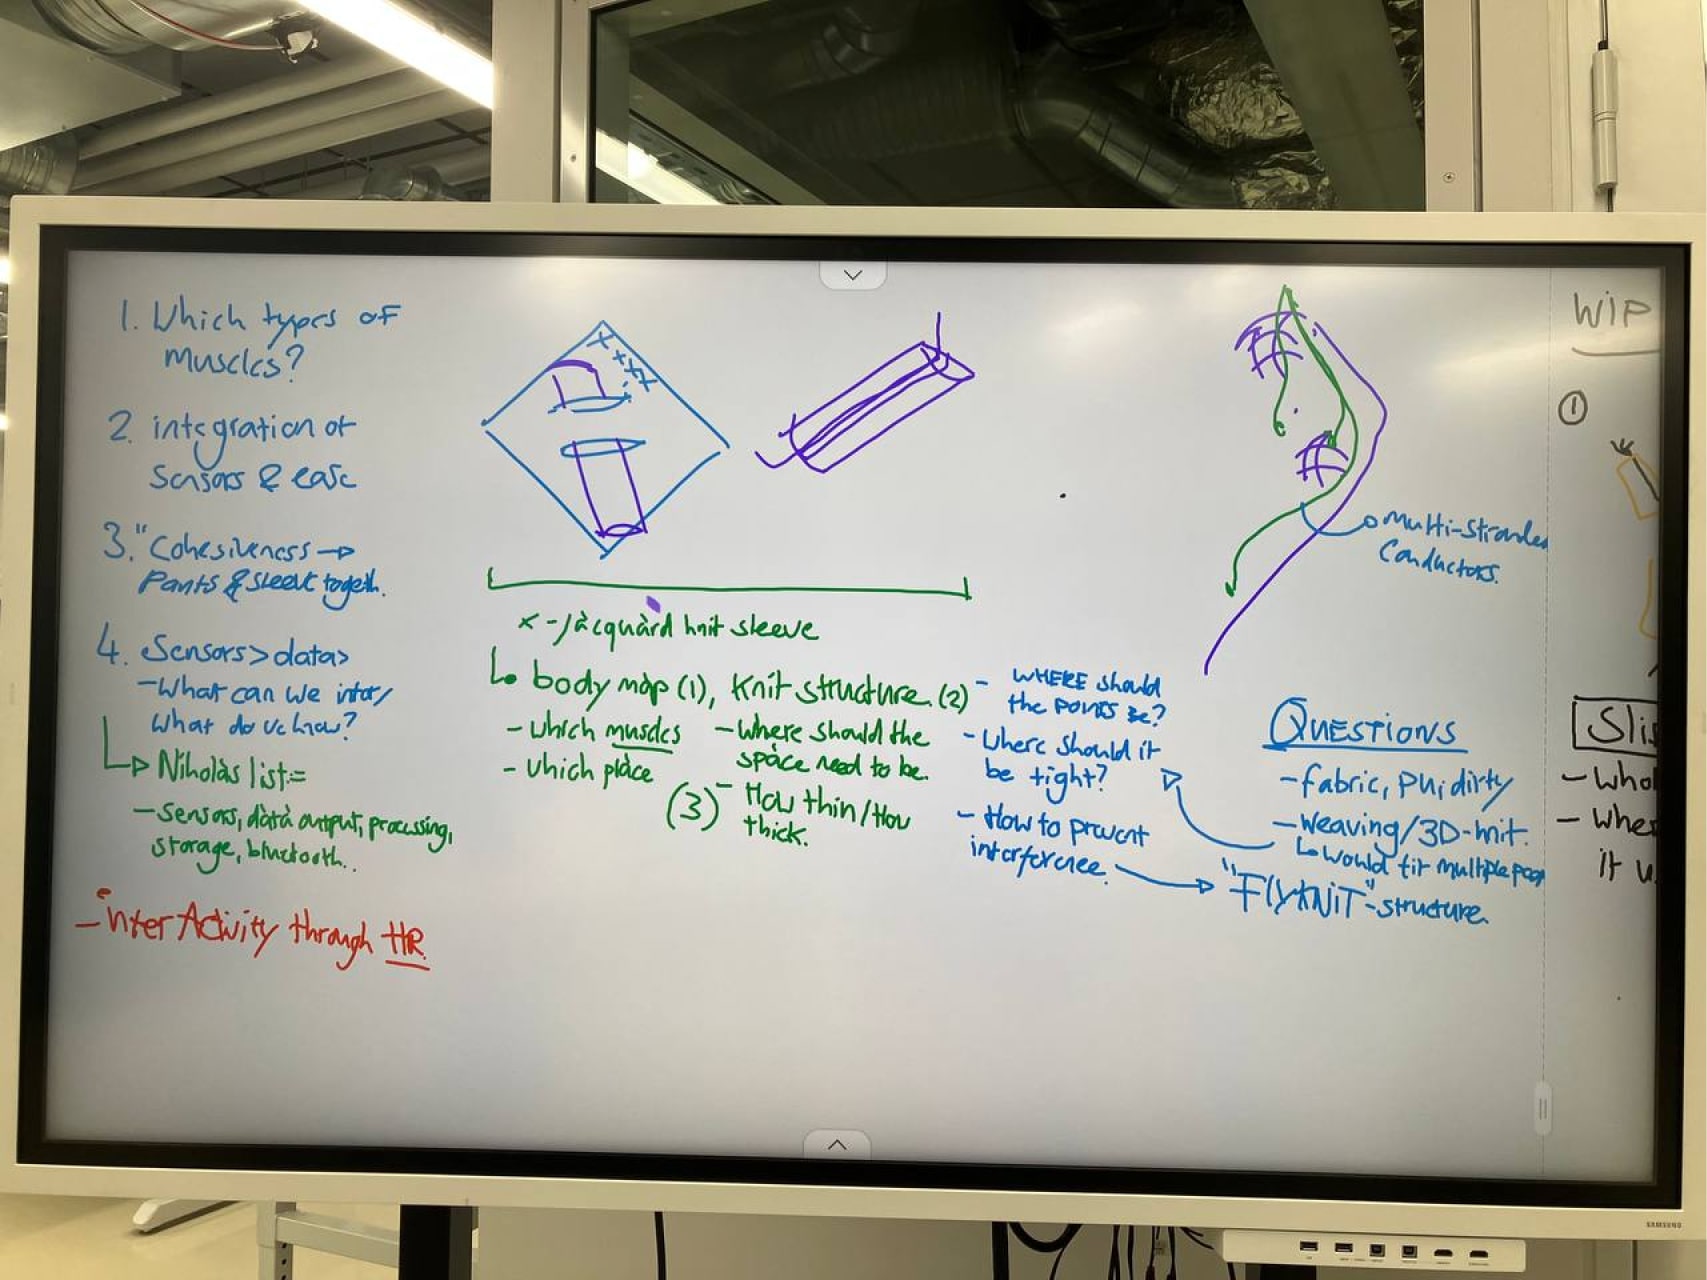 1. Which types of
muscles?
2. integration of
sensors & ease
3. "Cohesiveness →
Pants & sleeve togeth.
4. Sensors > data >
- What can we
What do we know?
Niholas list =
- Sensors, data output, processing,
storage, bluetooth.
- interActivity through HR.
x - jacquard knit sleeve
body map (1), Knit structure. (2)
- which muscles
- which place
- Where should the
space need to be.
(3) - How thin / How
thick.
- WHERE should
the points be?
- Where should it
be tight?
- How to prevent
interference.
Multi-stranded
Conductors.
QUESTIONS
- fabric,
- Weaving/3D-knit.
would fit multiple
"FlyKNiT"-structure.
WIP
1
Slis
- who
- whe
it
SAMSUNG